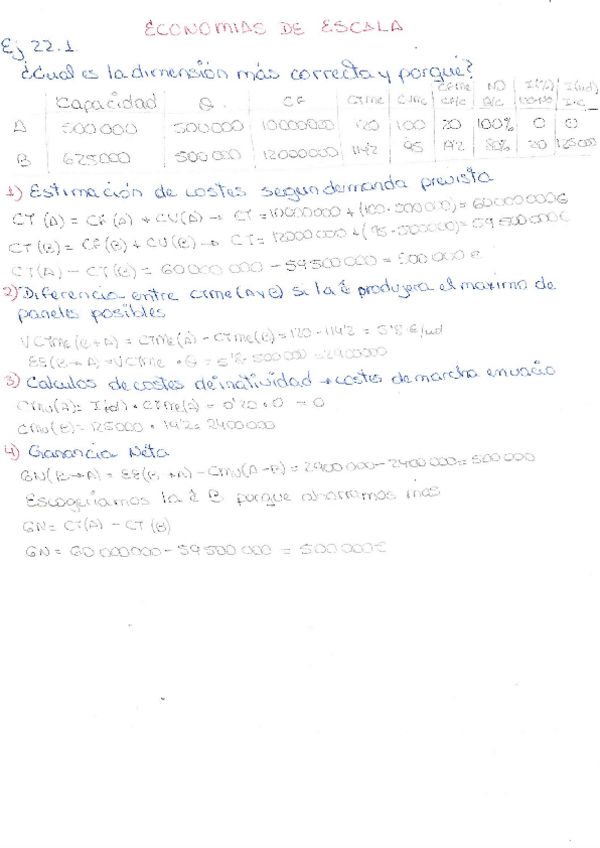 ECONOMIAS DE ESCALA
Ej 22.1
¿Cual es la dimensión más correcta y porque?
Capacidad Q. CF CTMe CVMe CFMe CF/C NO Q/C I(%) 100-NO I(ud) I·C
A 500 000 500 000 10000000 120 100 20 100% 0 0
B 625000 500 000 12000000 114'2 95 19'2 80% 20 125000
1) Estimación de costes segun demanda prevista
CT (A) = CF (A) + CV(A) → CT = 10000000 + (100 · 500 000) = 60 000 000€
CT (B) = CF (B) + CV (B) → CT = 12000 000 + (95 · 500000) = 59 500 000€
CT(A) - CT (B) = 60 000 000 - 59500 000 = 500 000 €
2) Diferencia entre CTMe (A y B) si la É produjera el maximo de
paneles posibles
VCTMe (B→A) = CTMe (A) - CTMe (B) = 120 - 114'2 = 5'8 €/ud
EE (B→A) = VCTMe · Q = 5'8 · 500 000 = 2900000
3) Calculos de costes de inatividad → costes de marcha en vacio
CMV(A) = I(ud) · CFMe(A) = 0'20 · 0 = 0
CMV (B) = 125000 · 19'2 = 2400 000
4) Ganancia Neta
GN (B→A) = EE (B→A) - CMV (A-B) = 2900 000 - 2400 000 = 500 000
Escogeriamos la É B porque ahorramos mas
GN = CT(A) - CT (B)
GN = 60 000 000 - 59 500 000 = 500 000€